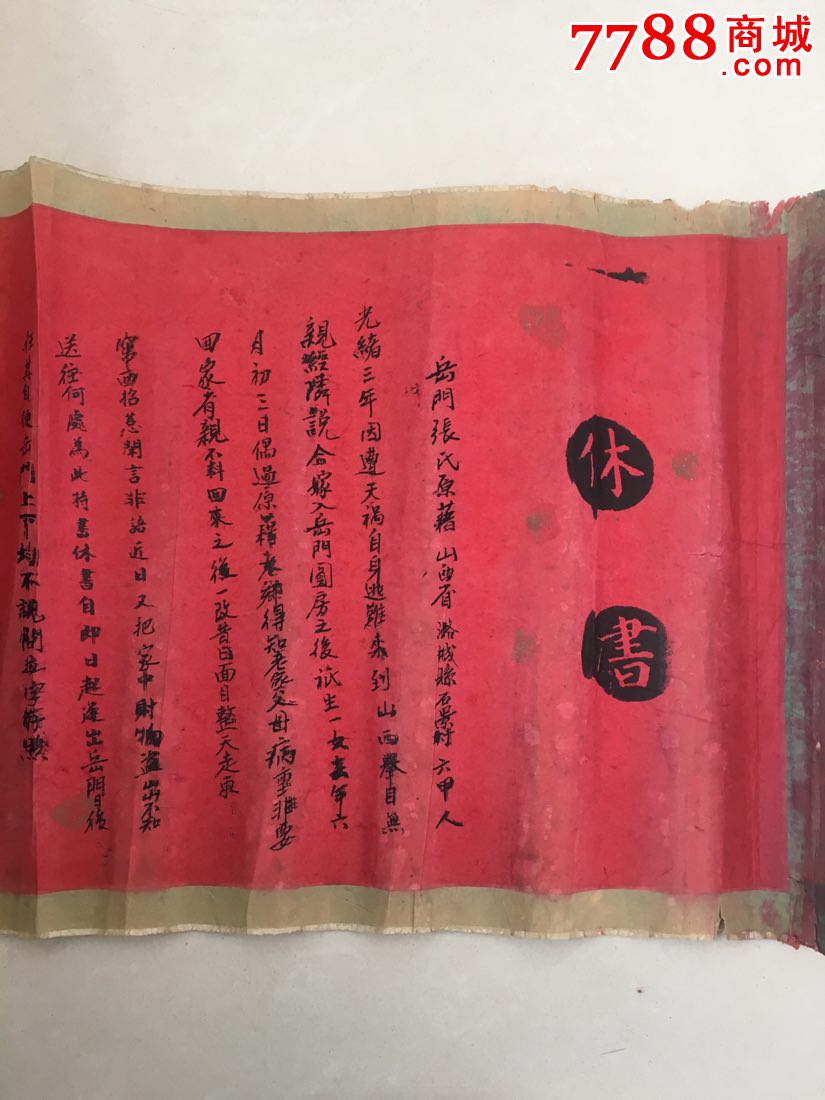 7788商城
.com
休書
岳門張氏原藉山西省潞城縣石景村六甲人
光緒三年因遭天祸自身逃難來到山西舉目無
親經隣説合嫁入岳門圓房之後祇生一女去年六
月初三日偶遇原籍老鄉得知老家父母病重非要
回家省親不料回來之後一改昔日面目整天走東
窜西招惹閑言非語近日又把家中財物盗出不知
送往何處為此特書休書自即日起逐出岳門日後
任其自便岳門上下均不說閑